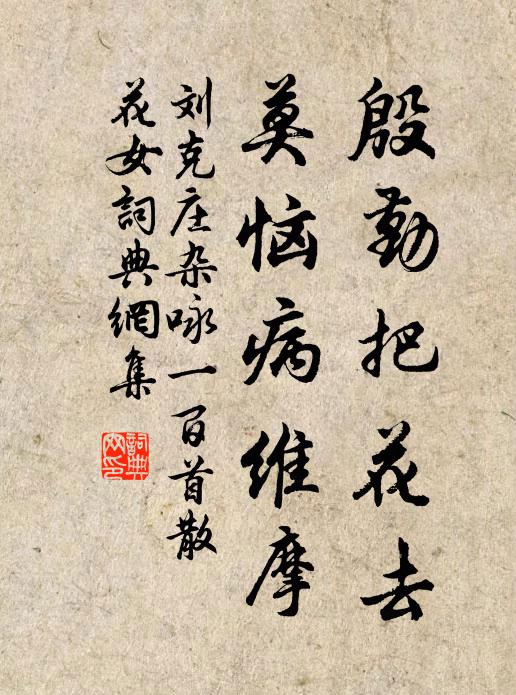 殷勤把花去
莫恼病维摩
刘克庄杂咏一百首散
花女詞典網集
詞典
网印